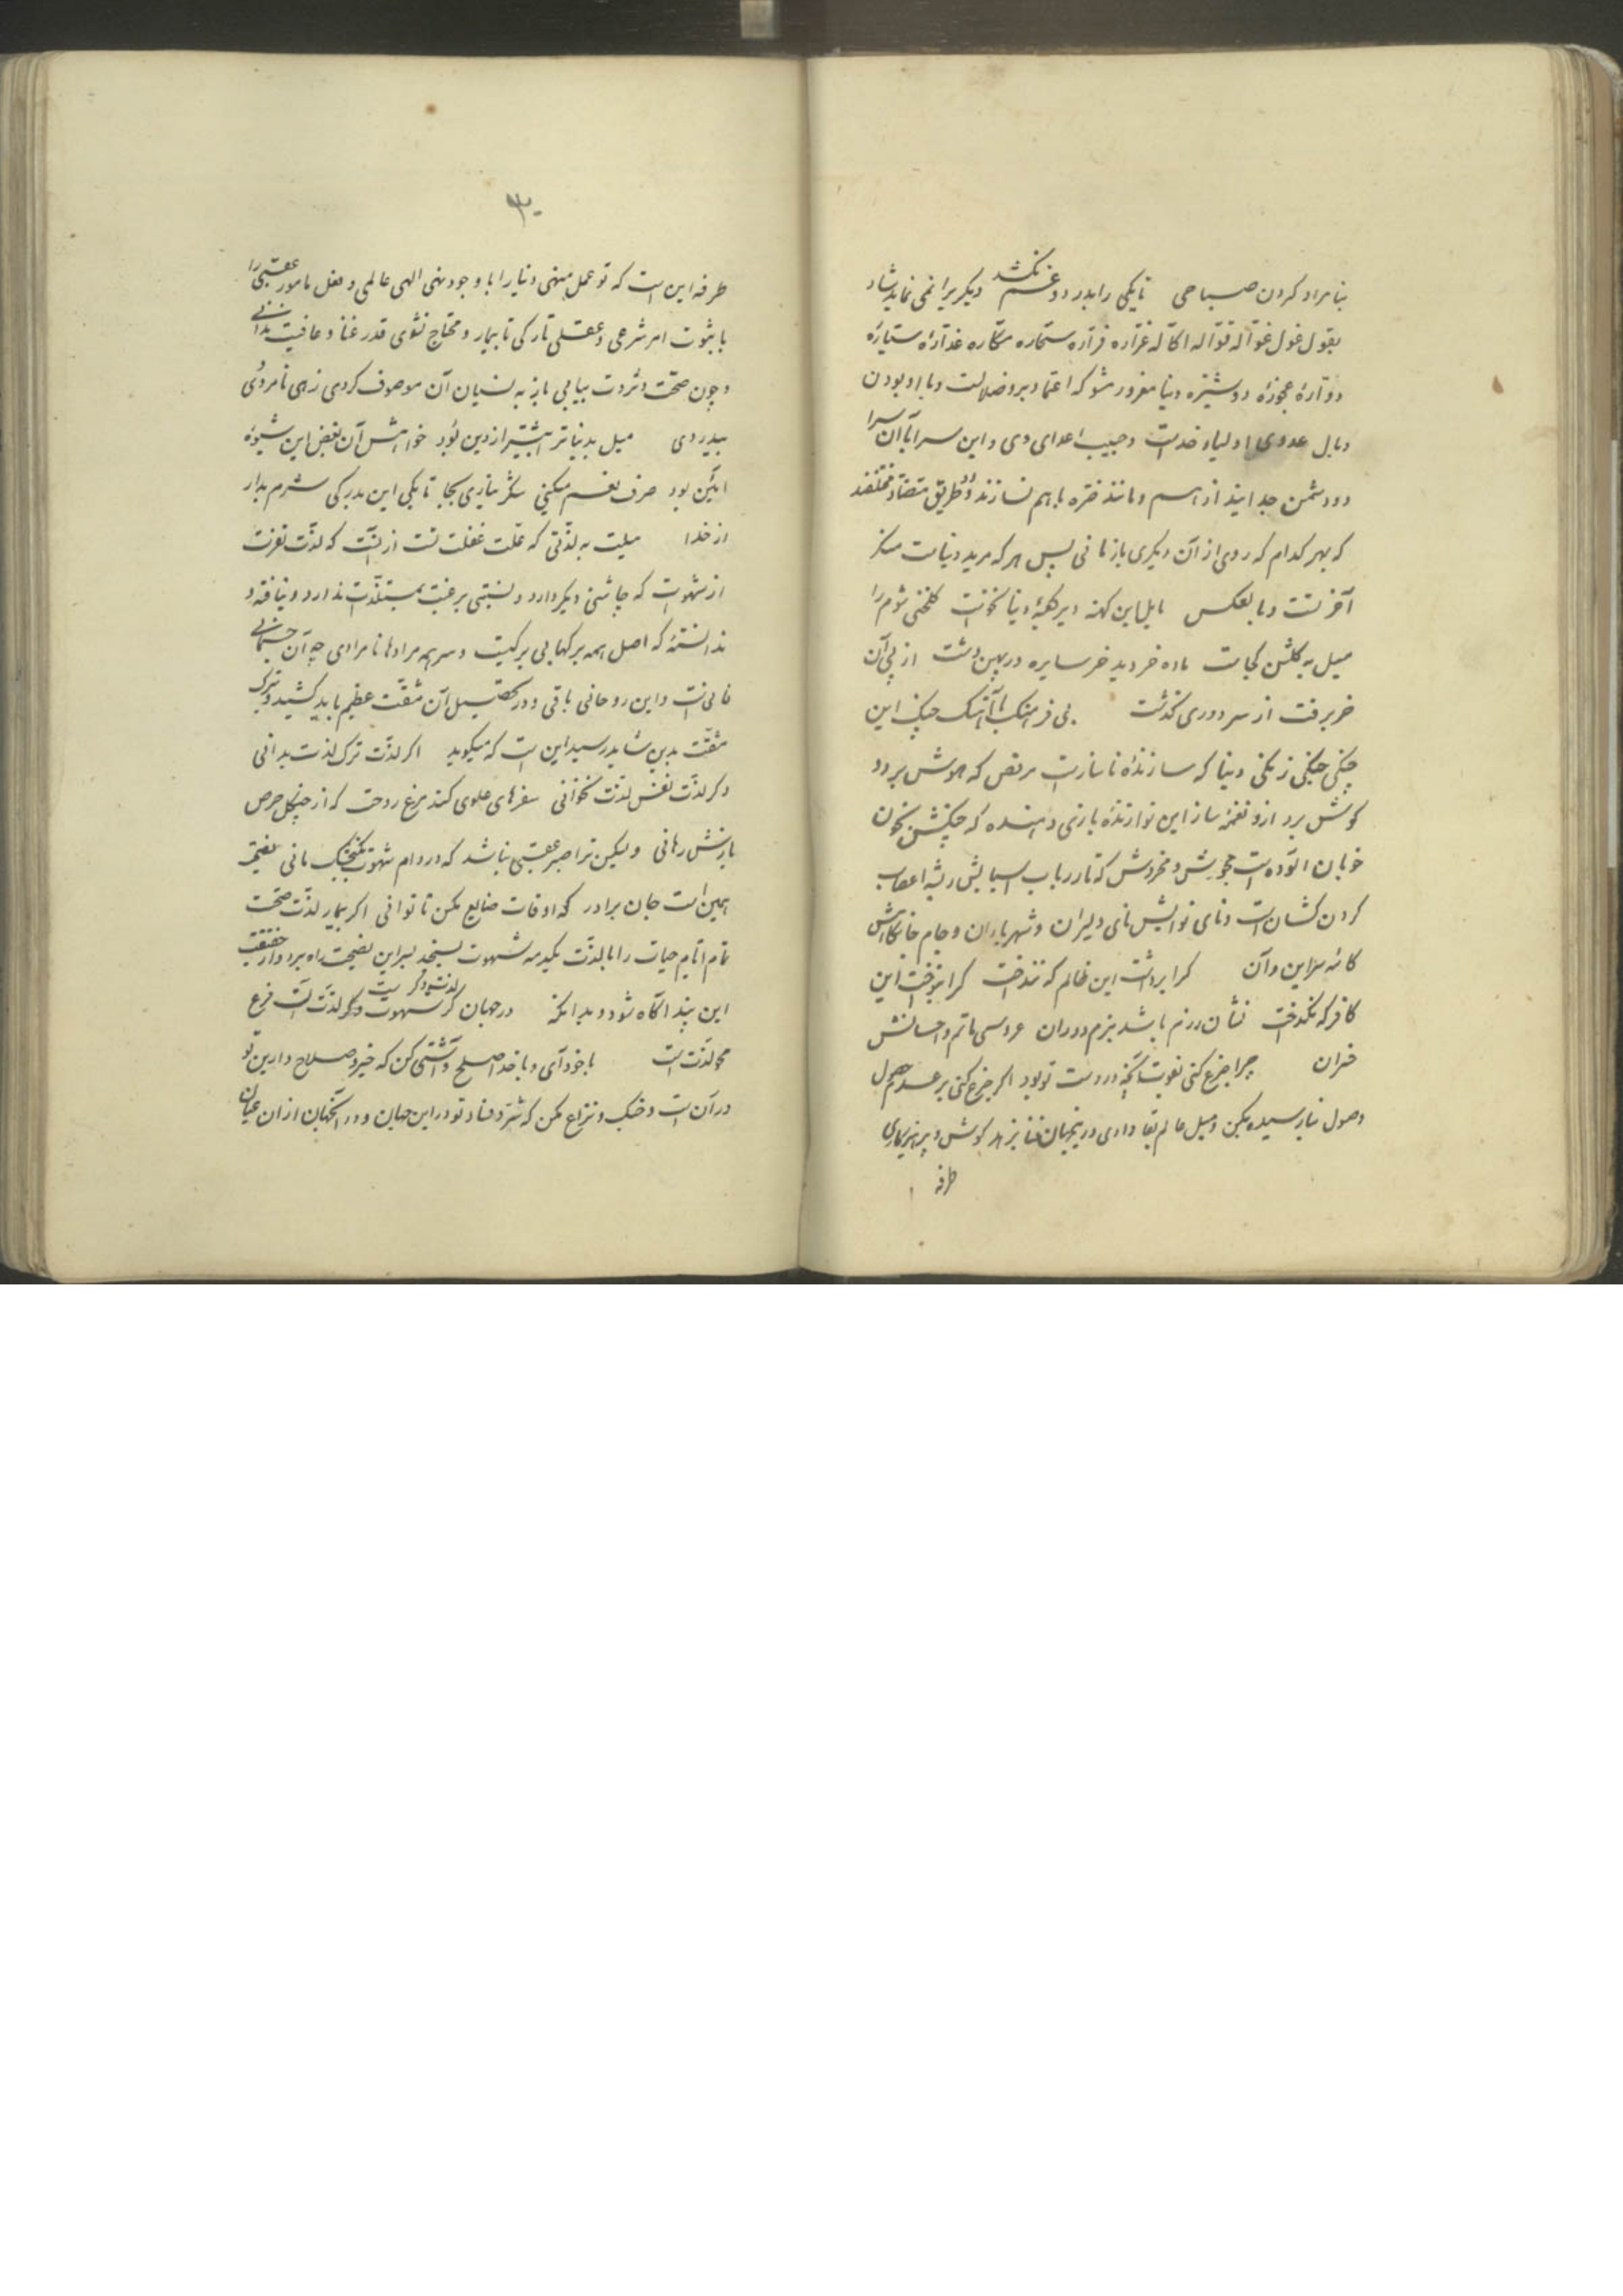 بنامراد کردن صباحی تا یکی را بدرد و غم نکشد دیگریرا نمی نماید شاد
بقول غول غوّاله قوّاله اکّاله غرّاره فرّاره ستماره مکّاره غدّارهٔ ستیارهٔ
دوّارهٔ عجوزهٔ دوشیزه دنیا مغرور مشو که اعتماد برو ضلالت و با او بودن
وبال عدوی اولیاء خداست و حبیب اعدای وی و این سرا با آن سرا
دو دشمن جدایند از هم و مانند ضرّه باهم نسازند و دو طریق متضاد مختلفند
که بهر کدام که روی از آن دیگری باز مانی پس هر که مرید دنیاست منکر
آخرتست و بالعکس مایل این کهنه دیر کلبهٔ دنیا نکوست گلخنی شوم را
میل به گلشن کجاست ماده خر دید خر سایره در پهن دشت از پی آن
خر برفت از سر دوری گذشت بی فرهنگ آهنگ چنگ این
چنگی جنگی زنگی دنیا که سازندهٔ ناساز است مرقص که هوش برود
گوش برد ازو نغمه ساز این نوازندهٔ بازی دهنده که چنگش بخون
خوبان آلوده است مجوش و مخروش که تار رباب اسبابش رشهٔ اعصاب
گردن کشان است و نای نوایش نای دلیران و شهریاران و جام خانکاهش
کاسه سر این و آن کرا برداشت این ظالم که ننداخت کرا بنواخت این
کافر که نگداخت نشان رزم باشد بزم دوران عروسی ماتم و احسانش
خسران چرا جزع کنی بفوت آنچه در دست تو بود اگر جزع کنی بر عدم حصول
وصول نیارسیده بکن و میل عالم بقا داری در ینجهان فنا بزهد کوش و پرهیزکاری
طرفه
۳۰
طرفه این است که تو عمل منهی دنیا را با وجود نهی الهی عالمی و فعل مامور عقبی را
با ثبوت امر شرعی و عقلی تارکی تا بیمار و محتاج نشوی قدر غنا و عافیت ندانی
و چون صحّت و ثروت بیابی باز به نسیان آن موصوف گردی زهی نامردی
بیدردی میل بدنیا ترا بیشتر از دین بود خواهش آن بغض این شیوهٔ
آئین بود صرف نعم میکنی شکر نیاری بجا تا بکی این مدرکی شرم بدار
از خدا میلت به لذّتی که علّت غفلت تست از آنست که لذّت نفرت
از شهوت که چاشنی دیگر دارد و نسبتی برغبت مستلذّات ندارد و نیافته و
ندانستهٔ که اصل همه برگها بی برگیست و سر همه مرادها نامرادی چه آن جسمانی
فانی است و این روحانی باقی و در تحصیل آن مشقّت عظیم باید کشید و بترک
مشقّت بدین شاید رسید این است که میگوید اگر لذّت ترک لذت بدانی
دگر لذّت نفس لذت نخوانی سفرهای علوی کند مرغ روحت گر از چنگل حرص
بازش رهانی ولیکن ترا صبر عنقا نباشد که در دام شهوت بگنجشک مانی نصیحت
همین است جان برادر که اوقات ضایع مکن تا توانی اگر بیمار لذّت صحّت
تمام ایّام حیات را با لذّت یکدمه شهوت بسنجد بسر این نصیحت راه برد و از حقیقت
این پند آگاه شود و بداند که در جهان گر شهوت و گر لذت است فرع
لذت دگر است
محو لذّت است با خود آی و با خدا صلح و آشتی کن که خیر و صلاح دارین تو
در آن است و جنگ و نزاع مکن که شر و فساد تو در این جهان و در آنجهان از ان عیان